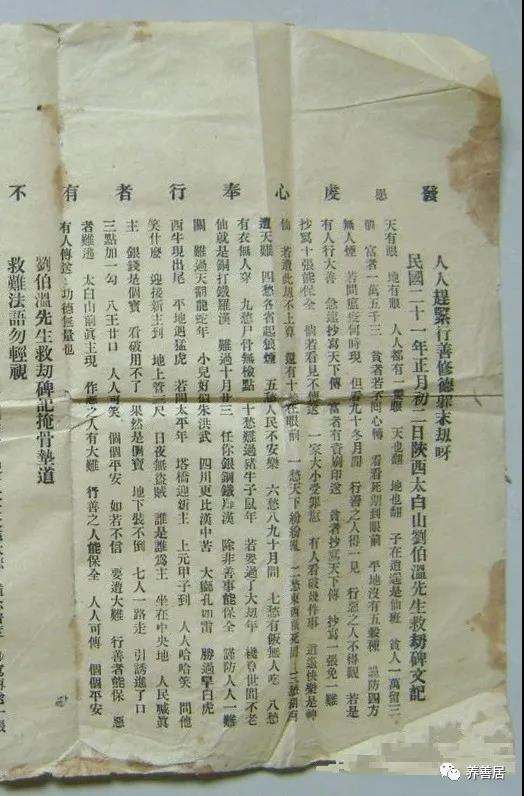 發愿虔心奉行者有不
人人趕緊行善修德避末劫呀
民國二十一年正月初二日陝西太白山劉伯溫先生救劫碑文記
天有眼 地有眼 人人都有一雙眼 天也翻 地也翻 子在逍遙是仙班 貧人一萬留三千
富者一萬五千三 貧者若不回心轉 看看死期到眼前 平地沒有五穀種 謹防四方
無人煙 若問瘟疫何時現 但看九十冬月間 行善之人得一見 行惡之人不得觀 若是
有人行大善 急速抄寫天下傳 富者有資刷印送 貧者抄寫天下傳 抄寫一張免一難
抄寫十張能保全 倘若看見不傳送 一家大小受罪愆 有人看破幾件事 逍遙快樂是神
仙 若遭此劫不上算 還有十愁在眼前 一愁天下紛紛亂 二愁東西餓死園 三愁湖西
遭天難 四愁各省起狼煙 五愁人民不安樂 六愁八九十月間 七愁有飯無人吃 八愁
有衣無人穿 九愁尸骨無檢點 十愁難過豬牛子鼠年 若要過了大劫年 纔算世間不老
仙 就是銅打鐵羅漢 難過十月廿三 任你銀銅鐵羅漢 除非善事能保全 謹防人人一難
關 難過天翻龍蛇年 小兒好個朱洪武 四川更比漢中苦 大獅吼如雷 勝過早白虎
西牛現出尾 平地遇猛虎 若問太平年 塔橋迎新主 上元甲子到 人人哈哈笑 問他
笑什麼 迎接新主到 地上管三尺 日夜無盜賊 誰是誰為主 坐在中央地 人民喊真
主 銀錢是個寶 看破用不了 果然是個寶 地下裝不倒 七人一路走 引誘進了口
三點加一勾 八王廿口 人人可笑 個個平安 如若不信 要遭大難 行善者能保 惡
者難逃 太白山前真主現 作惡之人有大難 行善之人能保全 人人可傳 個個平安
有人傳送 功德無量也
劉伯溫先生救劫碑記掩骨墊道
救難法語勿輕視
养善居